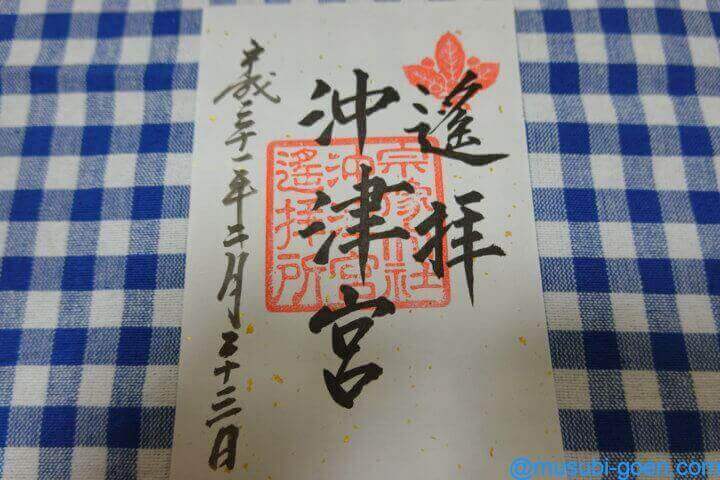 遙拝
沖津宮
宗像社
沖津宮
遙拝所
平成三十一年二月二十三日
@musubi-goen.com